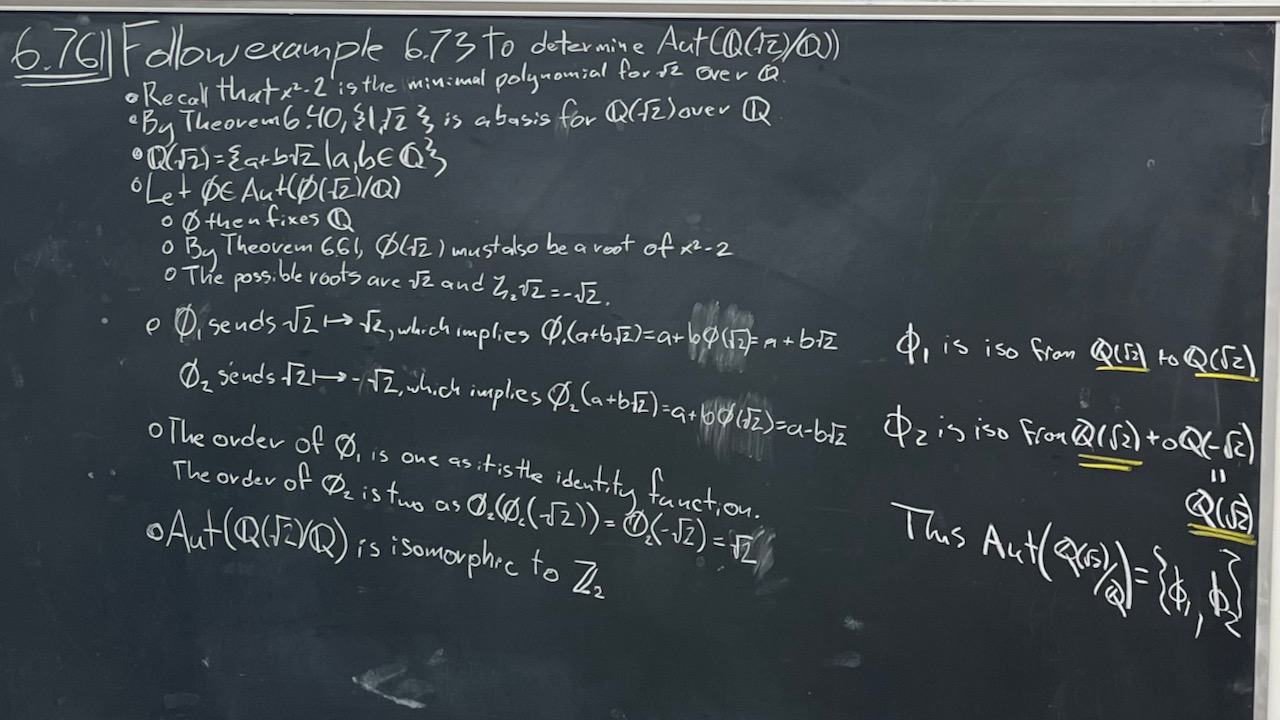 6.76 Follow example 6.73 to determine Aut(Q(√2)/Q)
∘ Recall that x²-2 is the minimal polynomial for √2 over Q.
∘ By Theorem 6.40, {1,√2} is a basis for Q(√2) over Q
∘ Q(√2)={a+b√2 | a,b∈Q}
∘ Let Ø∈ Aut(Ø(√2)/Q)
∘ Ø then fixes Q
∘ By Theorem 6.61, Ø(√2) must also be a root of x²-2
∘ The possible roots are √2 and ζ₂√2=-√2.
∘ Ø₁ sends √2 ↦ √2, which implies Ø₁(a+b√2)=a+bØ(√2)=a+b√2
Ø₂ sends √2 ↦ -√2, which implies Ø₂(a+b√2)=a+bØ(√2)=a-b√2
∘ The order of Ø₁ is one as it is the identity function.
The order of Ø₂ is two as Ø₂(Ø₂(-√2))=Ø₂(-√2)=√2
∘ Aut(Q(√2)/Q) is isomorphic to Z₂
ϕ₁ is iso from Q(√2) to Q(√2)
ϕ₂ is iso from Q(√2) to Q(-√2)
=
Q(√2)
Thus Aut(Q(√2)/Q)={ϕ₁, ϕ₂}